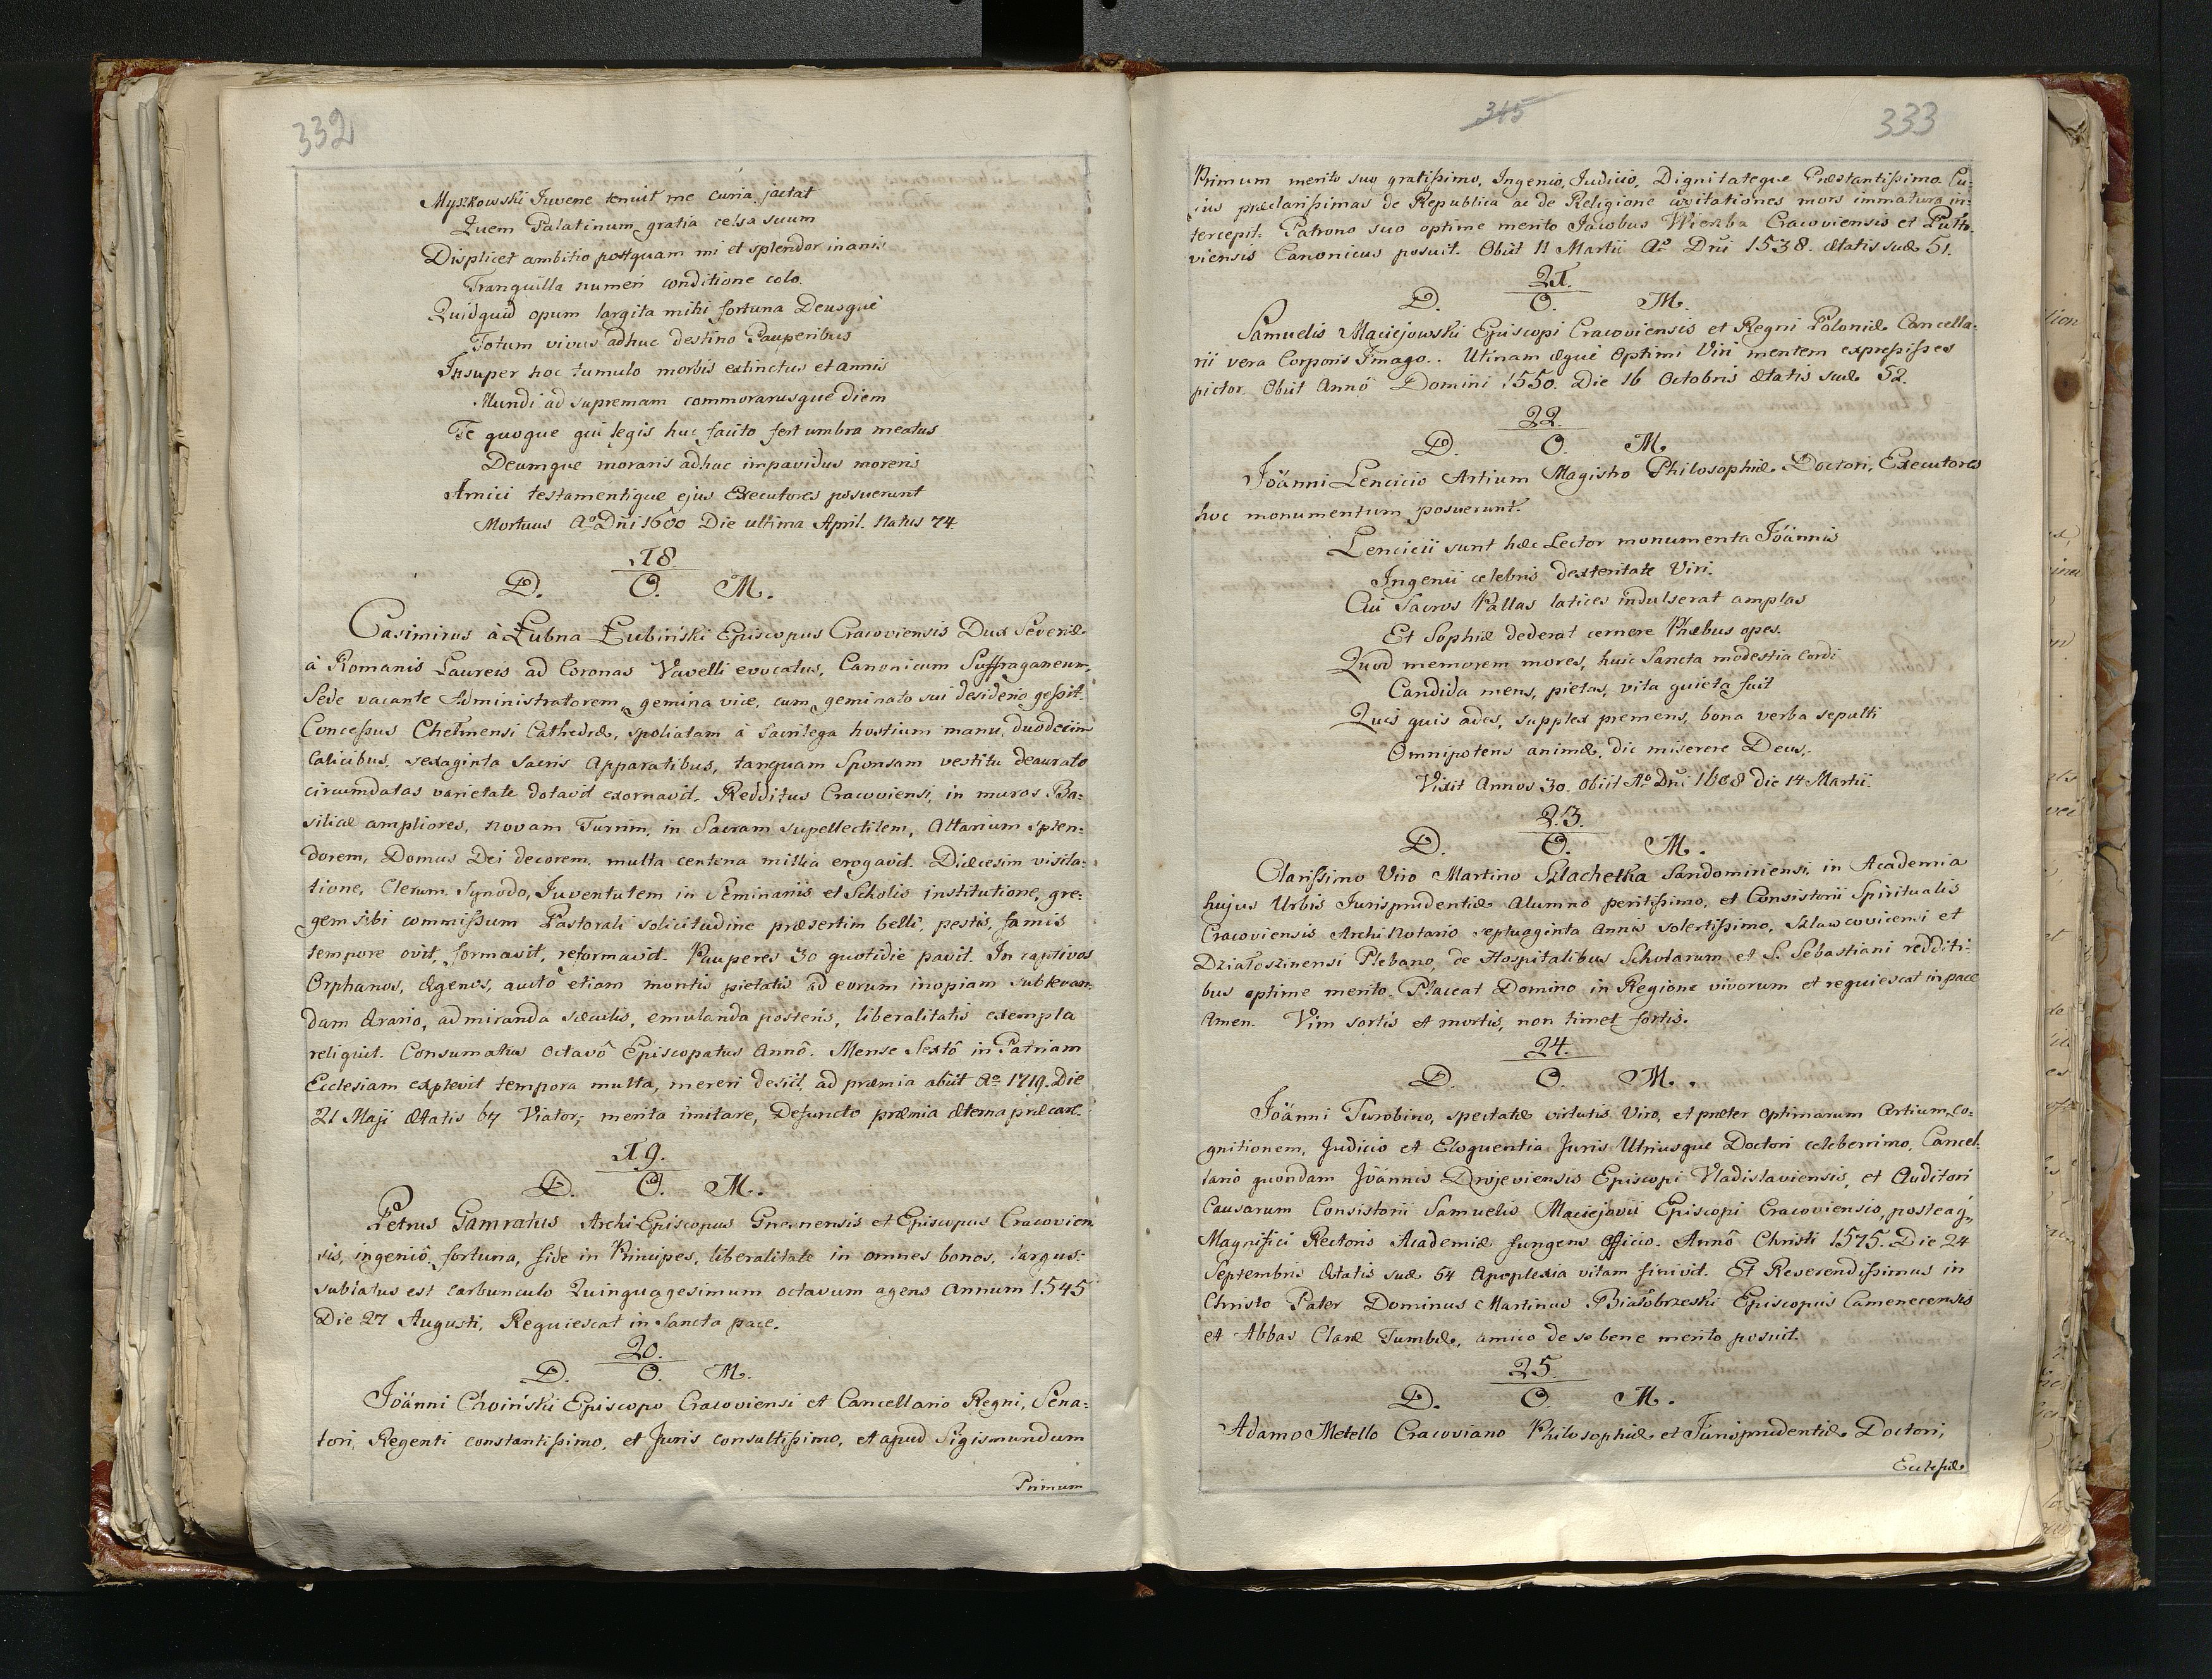 332
Myszkowski Iuvene tenuit me curia jactat
Quem Palatinum gratia celsa suum
Displicet ambitio postquam mi et splendor inanis
Tranquilla numen conditione colo.
Quidquid opum largita mihi fortuna Deusque
Totum vivus adhuc destino Pauperibus
Insuper hoc tumulo morbis extinctus et annis
Mundi ad supremam commorarusque diem
Te quoque qui legis huc facito fert umbra meatus
Deumque moraris adhuc impavidus moreris
Amici testamentique ejus Executores posuerunt
Mortuus Aº Dni 1600 Die ultima April. Natus 74.
18.
D. O. M.
Casimirus à Łubna Łubiński Episcopus Cracoviensis Dux Severiæ
à Romanis Laureis ad Coronas Vavelli evocatus, Canonicum Suffraganeum,
Sede vacante Administratorem, gemina vice, cum geminato sui desiderio gessit.
Concessus Chełmensi Cathedræ, spoliatam à sacrilega hostium manu, duodecim
Calicibus, sexaginta Sacris Apparatibus, tanquam Sponsam vestitu deaurato
circumdatas varietate dotavit exornavit. Redditus Cracoviensi, in muros Ba-
silicæ ampliores, novam Turrim, in Sacram supellectilem, Altarium splen-
dorem, Domus Dei decorem, multa centena millia erogavit. Diæcesim visita-
tione, Clerum Synodo, Iuventutem in Seminariis et Scholis institutione, gre-
gem sibi commissum Pastorali solicitudine præsertim belli, pestis, famis
tempore ovit, formavit, reformavit. Pauperes 30 quotidie pavit. In captivos
Orphanos, ægenos, aucto etiam montis pietatis ad eorum inopiam sublevan-
dam Ærario, admiranda sæculis, emulanda posteris, liberalitatis exempla
reliquit. Consumatus octavô Episcopatus Annô. Mense Sextô in Patriam
Ecclesiam explevit tempora multa, mereri desiit, ad præmia abiit Aº 1719. Die
21 Maji Ætatis 67 Viator, merita imitare, Defuncto præmia æterna præcare.
19.
D. O. M.
Petrus Gamratus Archi-Episcopus Gnesnensis et Episcopus Cracovien
sis, ingeniô, fortuna, fide in Principes, liberalitate in omnes bonos, largus:
sublatus est carbunculo Quinquagesimum octavum agens Annum 1545
Die 27 Augusti, Requiescat in Sancta pace.
20.
D. O. M.
Ioanni Choiński Episcopo Cracoviensi et Cancellario Regni, Sena-
tori, Regenti constantissimo, et Juris consultissimo, et apud Sigismundum
Primum
345
333
Primum merito suo gratissimo, Ingenio, Iudicio, Dignitateque Præstantissimo. Cu-
ius præclarissimas de Republica ac de Religione cogitationes mors immatura in-
tercepit. Patrono suo optime merito Iacobus Wierzba Cracoviensis et Pulto-
viensis Canonicus posuit. Obiit 11 Martii Aº Dni 1538. Ætatis suæ 51.
21.
D. O. M.
Samuelis Maciejowski Episcopi Cracoviensis et Regni Poloniæ Cancella-
rii vera Corporis Imago. Utinam æque Optimi Viri mentem expressisses
pictor. Obiit Annô Domini 1550. Die 16 Octobris Ætatis suæ 52.
22.
D. O. M.
Ioanni Lencicio Artium Magistro Philosophiæ Doctori, Executores
hoc monumentum posuerunt.
Lencicii sunt hæc Lector monumenta Ioannis
Ingenii celebris dexteritate Viri.
Cui Sacros Pallas latices indulserat amplas
Et Sophiæ dederat cernere Phœbus opes.
Quod memorem mores, huic Sancta modestia Cordi
Candida mens, pietas, vita quieta fuit
Quis quis ades, supplex premens, bona verba sepulti
Omnipotens animæ, dic miserere Deus.
Vixit Annos 30. Obiit Aº Dni 1608 Die 14 Martii.
23.
D. O. M.
Clarissimo Viro Martino Szlachetka Sandomiriensi, in Academia
hujus Urbis Iurisprudentiæ Alumno peritissimo, et Consistorii Spiritualis
Cracoviensis Archi Notario septuaginta Annis solertissimo, Szlawcovicensi et
Działoszinensi Plebano, de Hospitalibus Scholarum et S. Sebastiani redditi-
bus optime merito. Placeat Domino in Regione vivorum et requiescat in pace
Amen. Vim sortis et mortis, non timet fortis.
24.
D. O. M.
Ioanni Turobino, spectatæ virtutis Viro, et præter Optimarum Artium co-
gnitionem, Judicio et Eloquentia Juris Utriusque Doctori celeberrimo, Cancel-
lario quondam Ioannis Drojeviensis Episcopi Vladislaviensis, et Auditori
Causarum Consistorii Samuelis Maciejovii Episcopi Cracoviensis, posteaq,
Magnifici Rectoris Academiæ fungens Officio. Annô Christi 1575. Die 24
Septembris Ætatis suæ 64 Apoplexia vitam finivit. Et Reverendissimus in
Christo Pater Dominus Martinus Białobrzeski Episcopus Camenecensis
et Abbas Claræ Tumbæ, amico de se bene merito posuit.
25.
D. O. M.
Adamo Metello Cracoviano Philosophiæ et Iurisprudentiæ Doctori,
Ecclesiæ